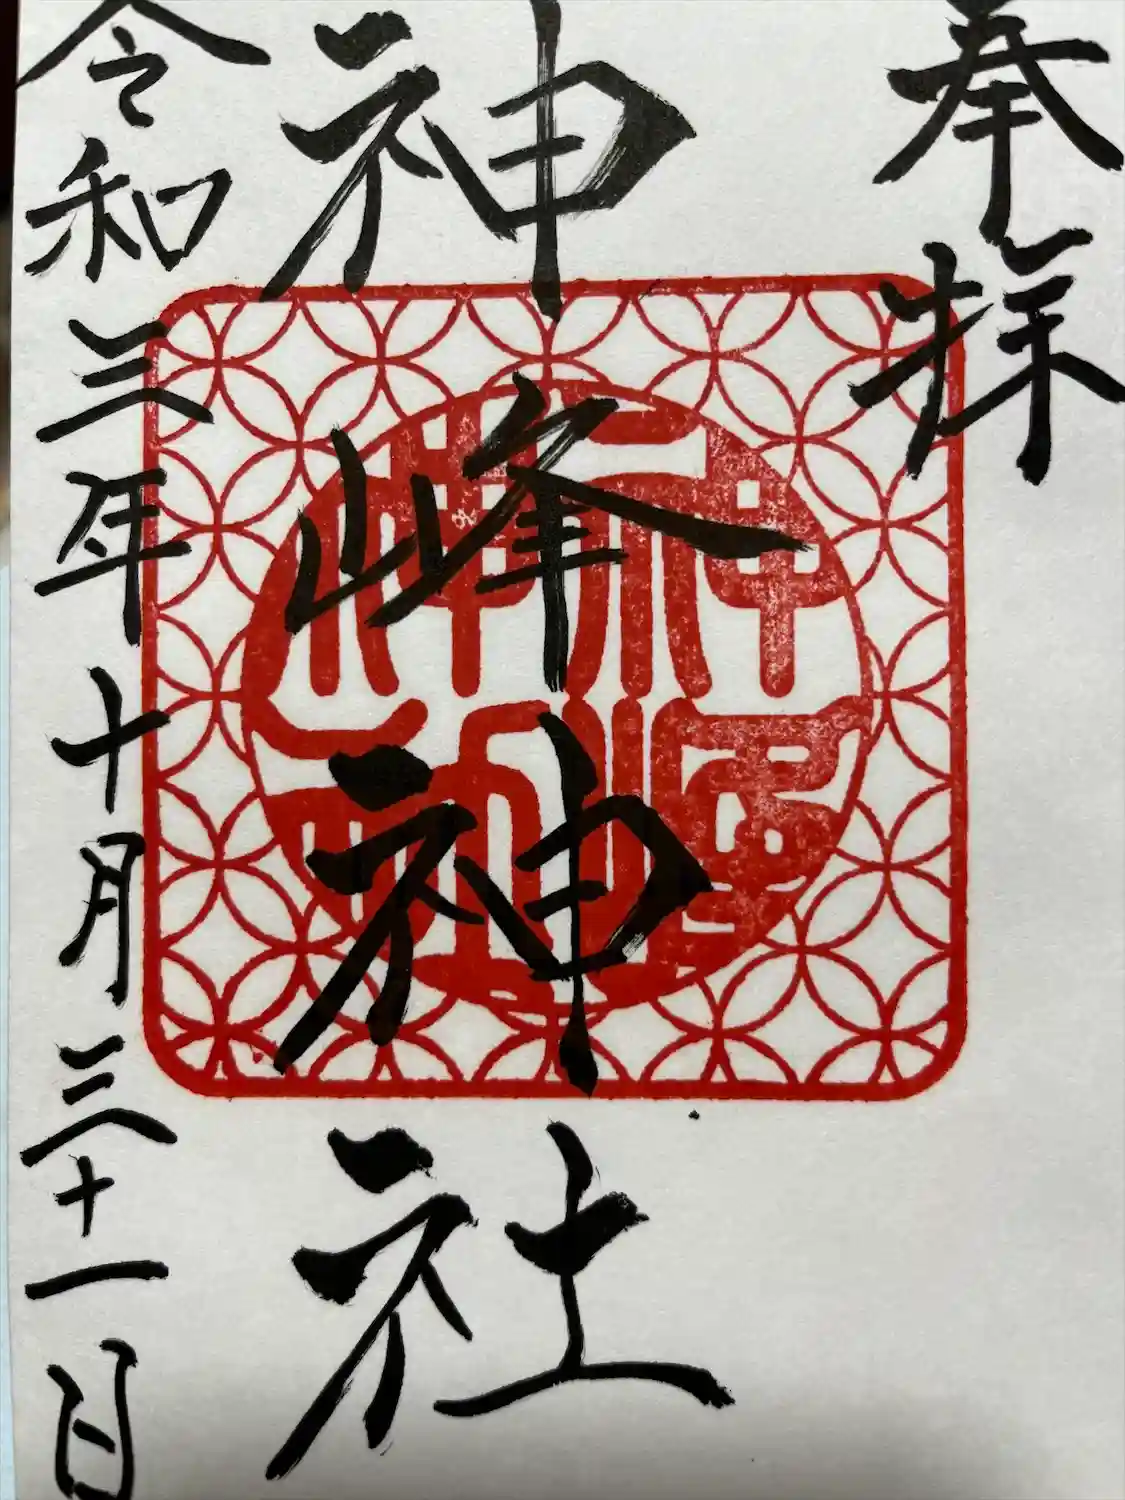 奉拝
神峰神社
令和三年十月三十一日